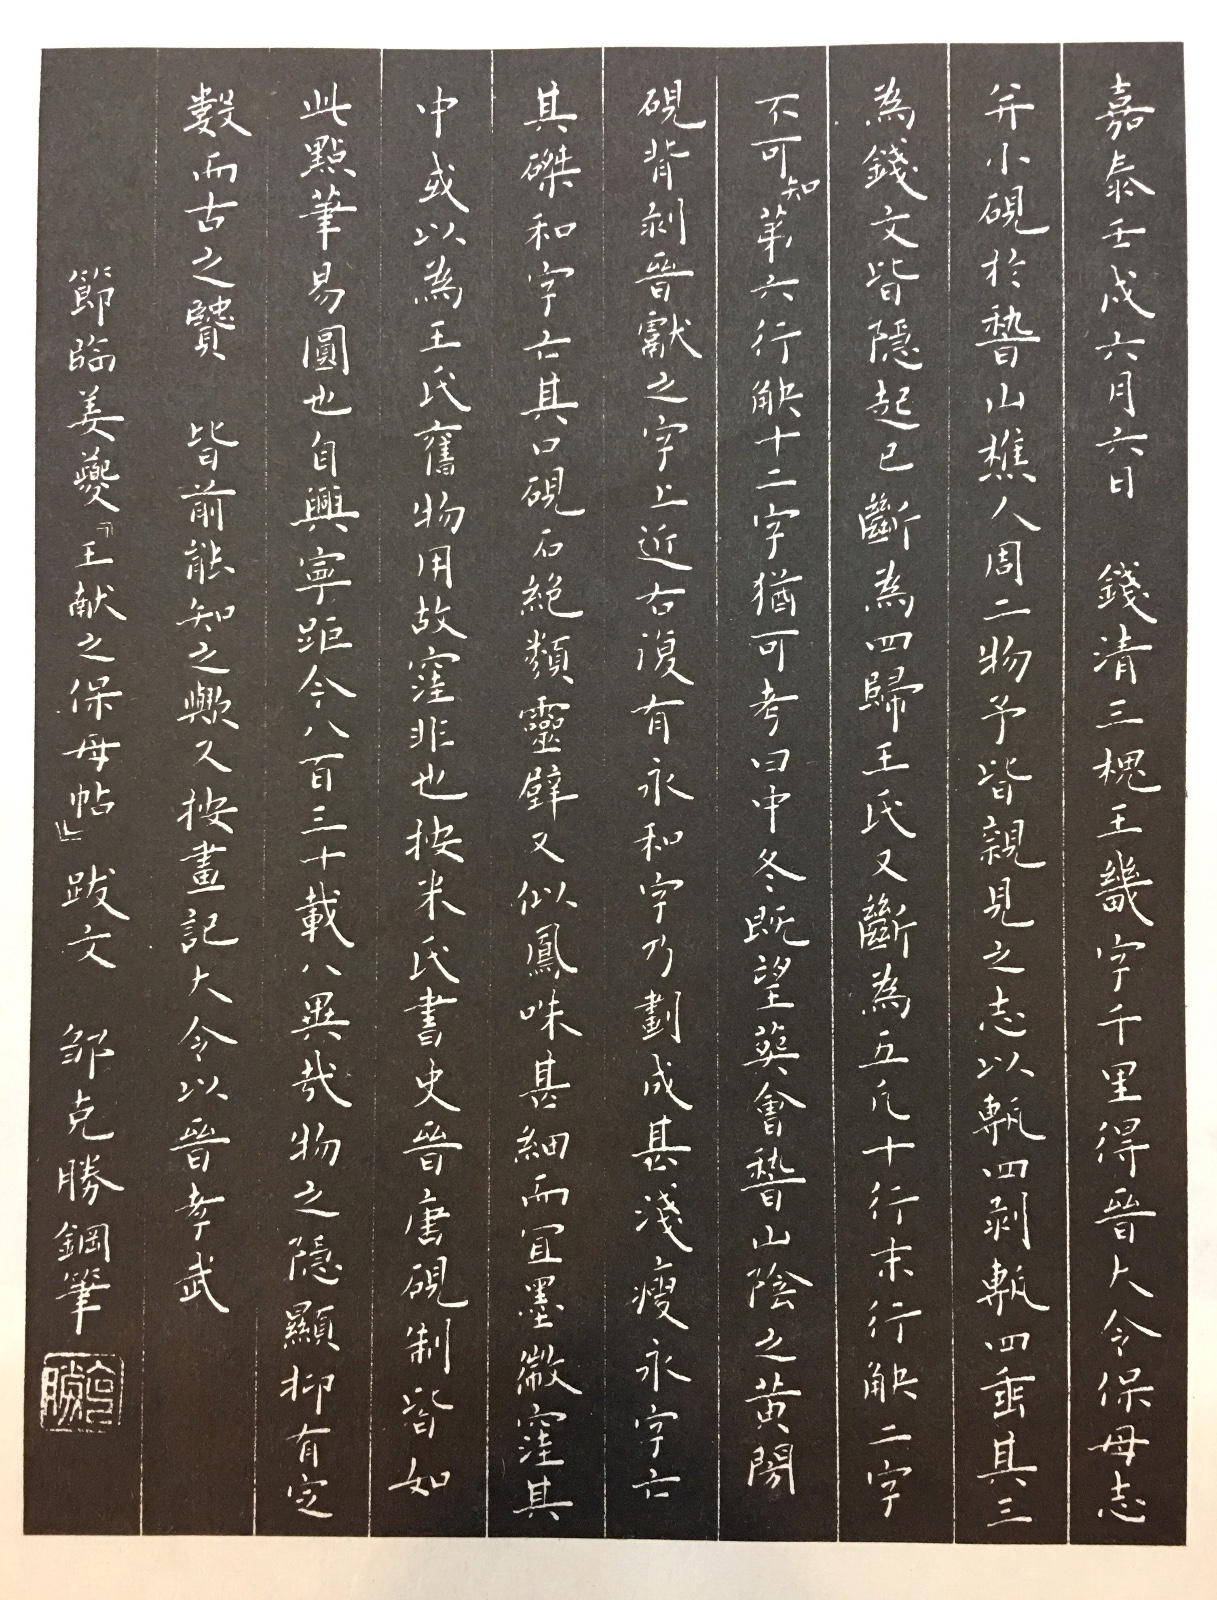 嘉泰壬戌六月六日　錢清三槐王畿字千里得晉大令保母志
并小硯於嵆山樵人周二物予皆親見之志以甎四剥甎四垂其三
為錢文皆隱起已斷為四歸王氏又斷為五凡十行末行缺二字
不可知第六行缺十二字猶可考曰中冬既望葬會嵆山陰之黄閍
硯背剥晉獻之字上近右復有永和字乃劃成甚淺瘦永字亡
其磔和字亡其口硯石絶類靈壁又似鳳咮甚細而宜墨微窪其
中或以為王氏舊物用故窪非也按米氏書史晉唐硯制皆如
此點筆易圓也自興寧距今八百三十載八異哉物之隱顯抑有定
數而古之賢　皆前能知之歟又按畫記大令以晉孝武
節臨姜夔『王献之保母帖』跋文　邹克勝鋼筆